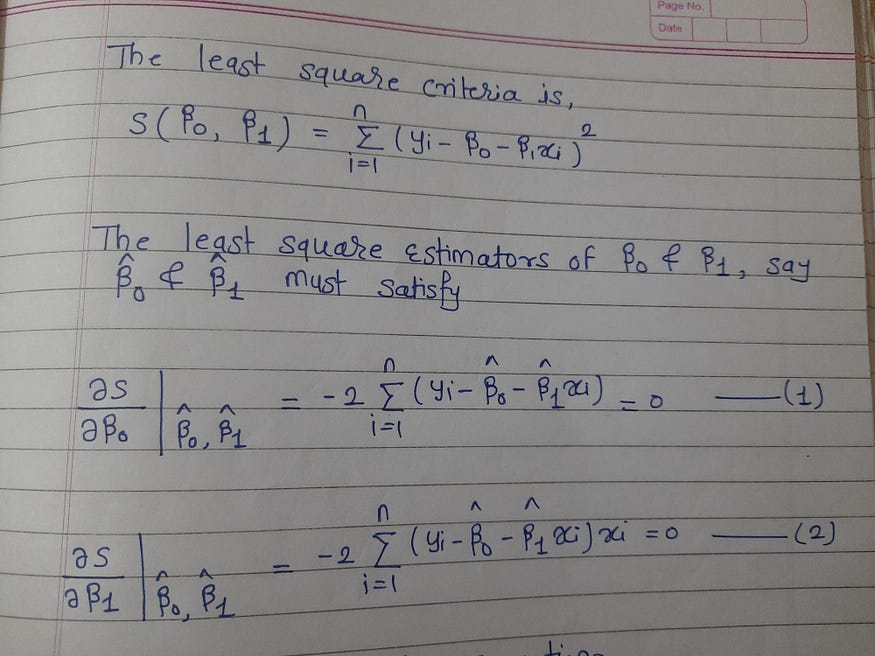 Page No.
Date
The least square criteria is,
S(β₀, β₁) = Σᵢ₌₁ⁿ (yᵢ - β₀ - β₁xᵢ)²
The least square estimators of β₀ & β₁, say
β̂₀ & β̂₁ must satisfy
∂S/∂β₀ |β̂₀, β̂₁ = -2 Σᵢ₌₁ⁿ (yᵢ - β̂₀ - β̂₁xᵢ) = 0 —— (1)
∂S/∂β₁ |β̂₀, β̂₁ = -2 Σᵢ₌₁ⁿ (yᵢ - β̂₀ - β̂₁xᵢ)xᵢ = 0 —— (2)